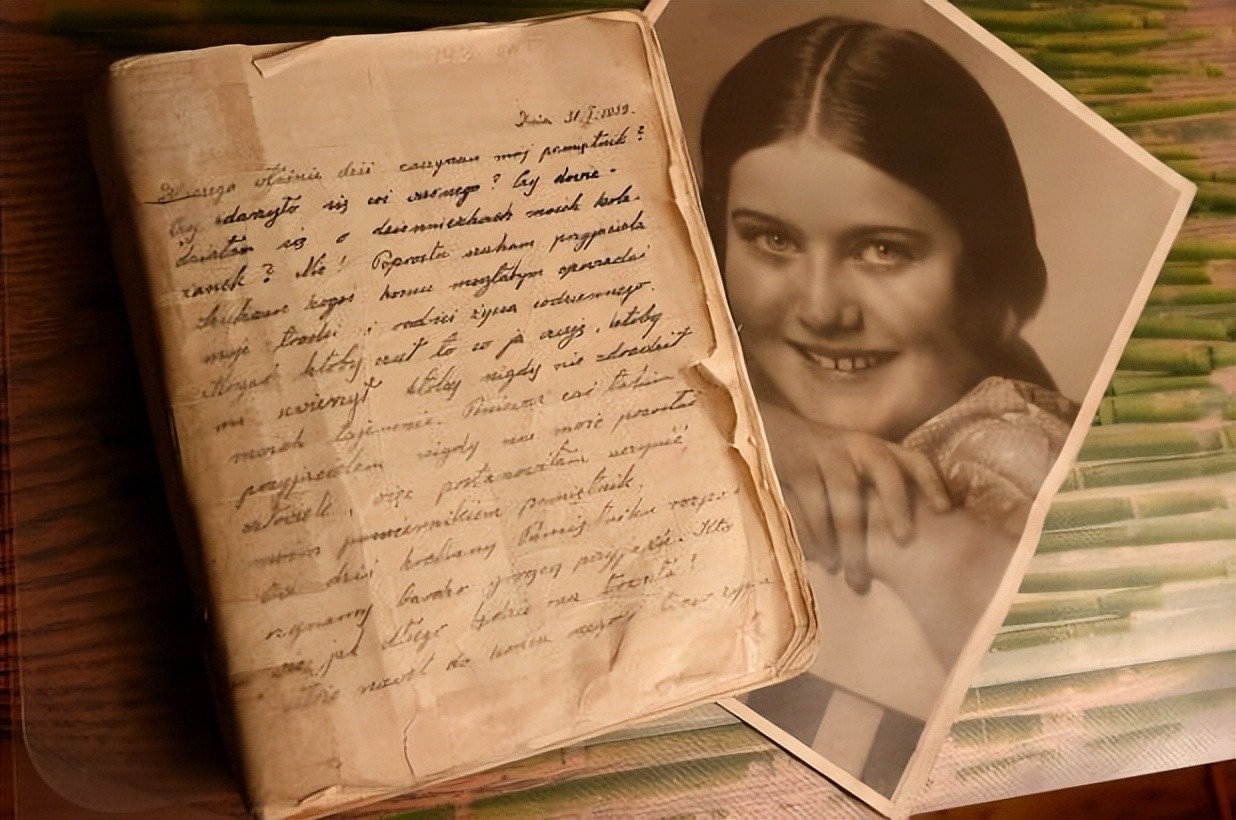 Dnia 31.I.1939.
Dlaczego właśnie dziś zaczynam mój pamiętnik?
Czy zdarzyło się coś ważnego? Czy dowie-
działam się o dzienniczkach moich kole-
żanek? Nie! Poprostu szukam przyjaciela
Szukam kogoś komu mogłabym opowiadać
moje troski i radości życia codziennego.
Kogoś ktoby czuł to co ja czuję, ktoby
mi uwierzył ktoby nigdy nie zdradził
moich tajemnic. Ponieważ coś takim
przyjacielem nigdy nie może pozostać
człowiek, więc postanowiłam uczynić
moim powiernikiem pamiętnik.
Od dziś kochany Pamiętniku rozpo-
czynamy bardzo gorącą przyjaźń. Kto
wie, jak długo będzie nas trwała?
nawet do końca